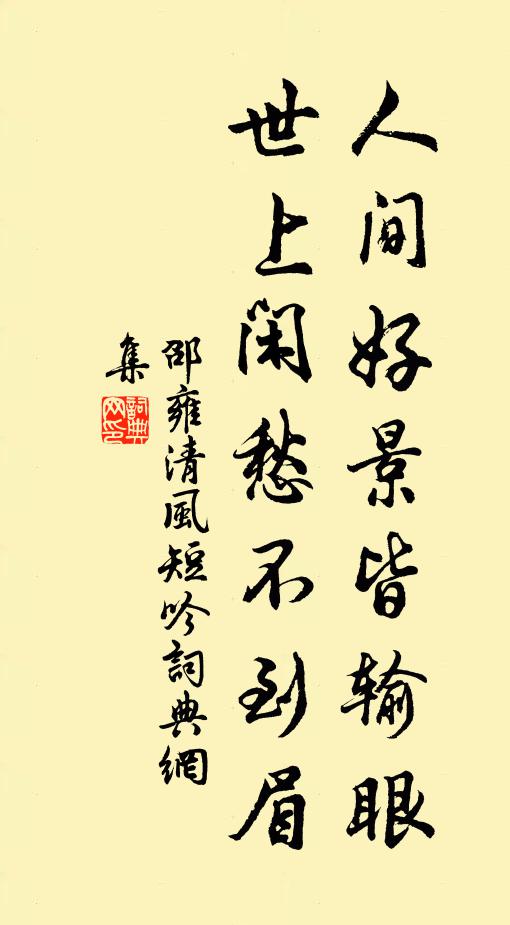 人间好景皆输眼
世上闲愁不到眉
邵雍清風短吟詞典網
集
詞典网印